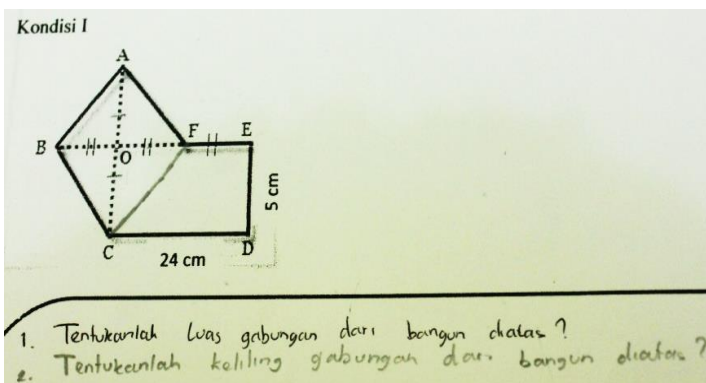 Kondisi I
A
B
O
F
E
5 cm
C
D
24 cm
1. Tentukanlah Luas gabungan dari bangun diatas?
2. Tentukanlah keliling gabungan dari bangun diatas?